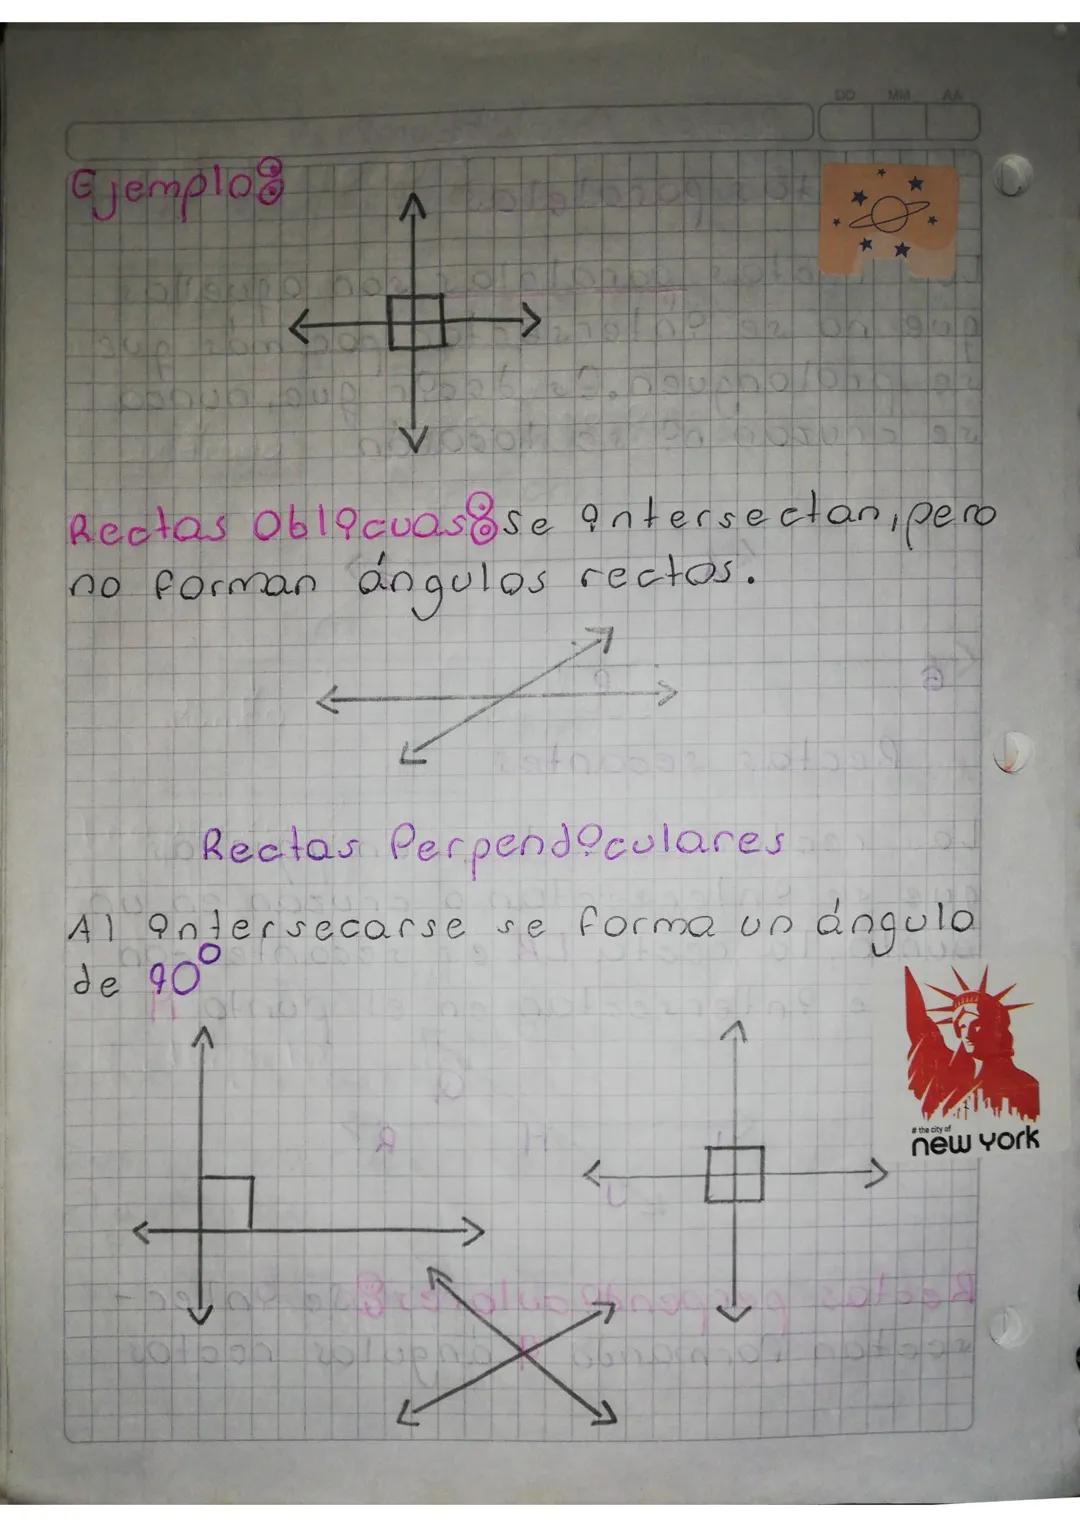 DD MM AA
Ejemplo:
Rectas Oblicuas: se intersectan, pero
no forman ángulos rectos.
Rectas Perpendiculares
Al intersecarse se forma un ángulo
de 90°
# the city of
new york